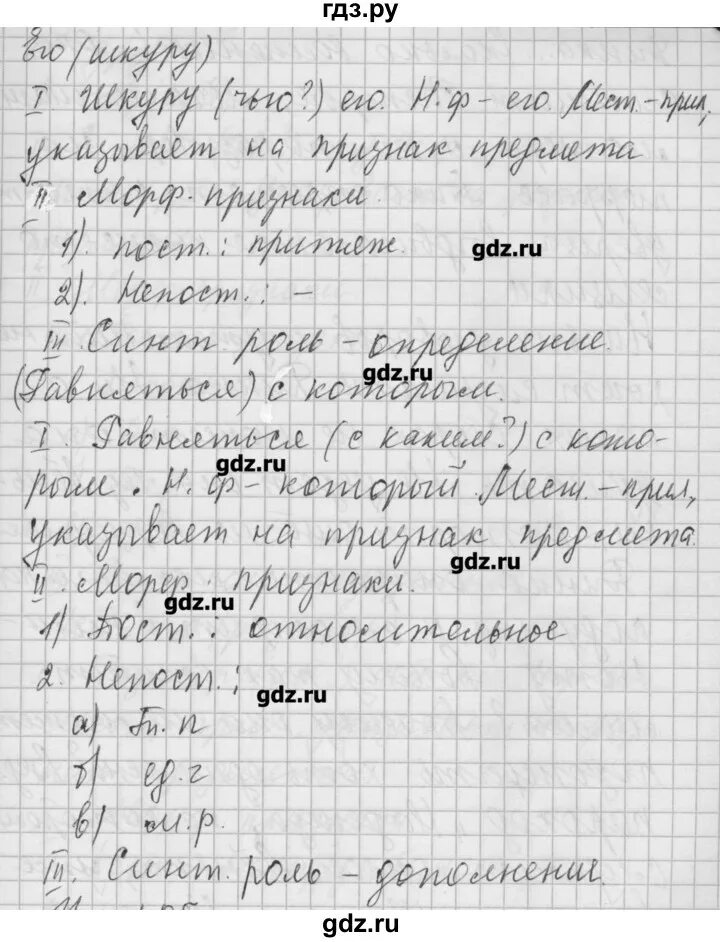 гдз.ру
Его (шкуру)
I Шкуру (чью?) его. Н.ф - его. Мест.-прил,
указывает на признак предмета
II. Морф. признаки.
1). пост.: притяж.
gdz.ru
2). Непост.: -
III. Синт. роль - определение.
gdz.ru
(Равняться) с которым.
I. Равняться (с каким?) с кото-
gdz.ru
рым. Н.ф - который. Мест.-прил,
указывает на признак предмета.
gdz.ru
II. Морф. признаки.
gdz.ru
1) Пост.: относительное
2. Непост.:
gdz.ru
а) Тп. п
б) ед. г
в) м.р.
III. Синт. роль - дополнение.
gdz.ru